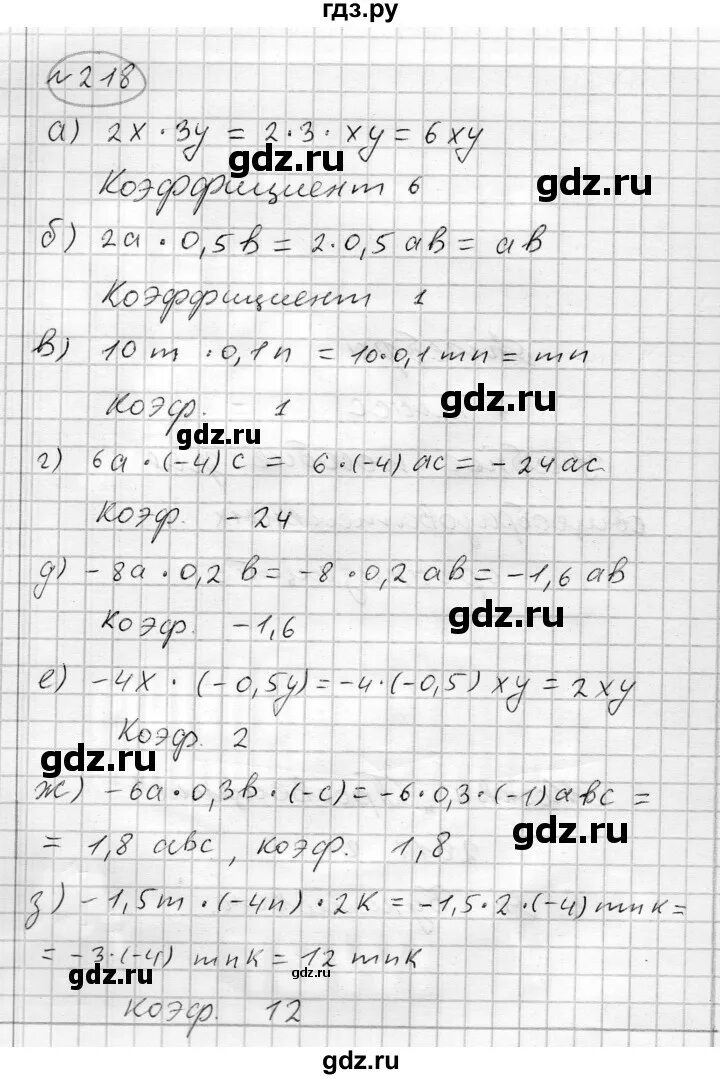 гдз.ру
№218
а) 2x · 3y = 2·3· xy = 6xy
gdz.ru
gdz.ru
Коэффициент 6
б) 2a · 0,5b = 2·0,5 ab = ab
gdz.ru
gdz.ru
Коэффициент 1
в) 10m · 0,1n = 10·0,1 mn = mn
gdz.ru
Коэф. 1
gdz.ru
г) 6a · (-4)c = 6·(-4) ac = -24ac
gdz.ru
Коэф. -24
gdz.ru
д) -8a · 0,2 b = -8 · 0,2 ab = -1,6 ab
gdz.ru
Коэф. -1,6
е) -4x · (-0,5y) = -4·(-0,5) xy = 2xy
Коэф. 2
gdz.ru
ж) -6a · 0,3b · (-c) = -6·0,3·(-1)abc =
gdz.ru
= 1,8 abc, коэф. 1,8
з) -1,5m · (-4n) · 2k = -1,5·2·(-4)mnk =
= -3·(-4) mnk = 12 mnk
gdz.ru
gdz.ru
Коэф. 12
gdz.ru